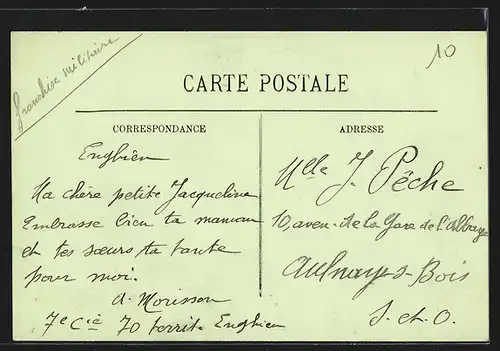 franchise militaire
10
CARTE POSTALE
CORRESPONDANCE
Enghien
Ma chère petite Jacqueline
Embrasse bien ta maman
et tes sœurs, ta tante
pour moi.
A. Morisson
7e Cie 70 territ. Enghien
ADRESSE
Mlle J. Pêche
10, aven. de la Gare de l'Abbaye
Aulnay-s-Bois
S.-et-O.